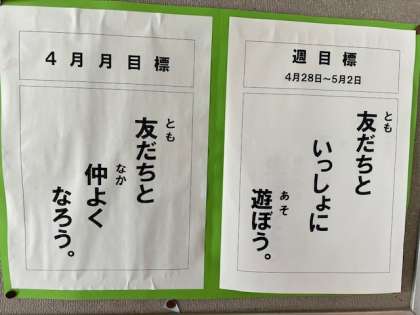 4月月目標
友だちと
とも
仲よく
なか
なろう。
週目標
4月28日～5月2日
友だちと
とも
いっしょに
遊ぼう。
あそ